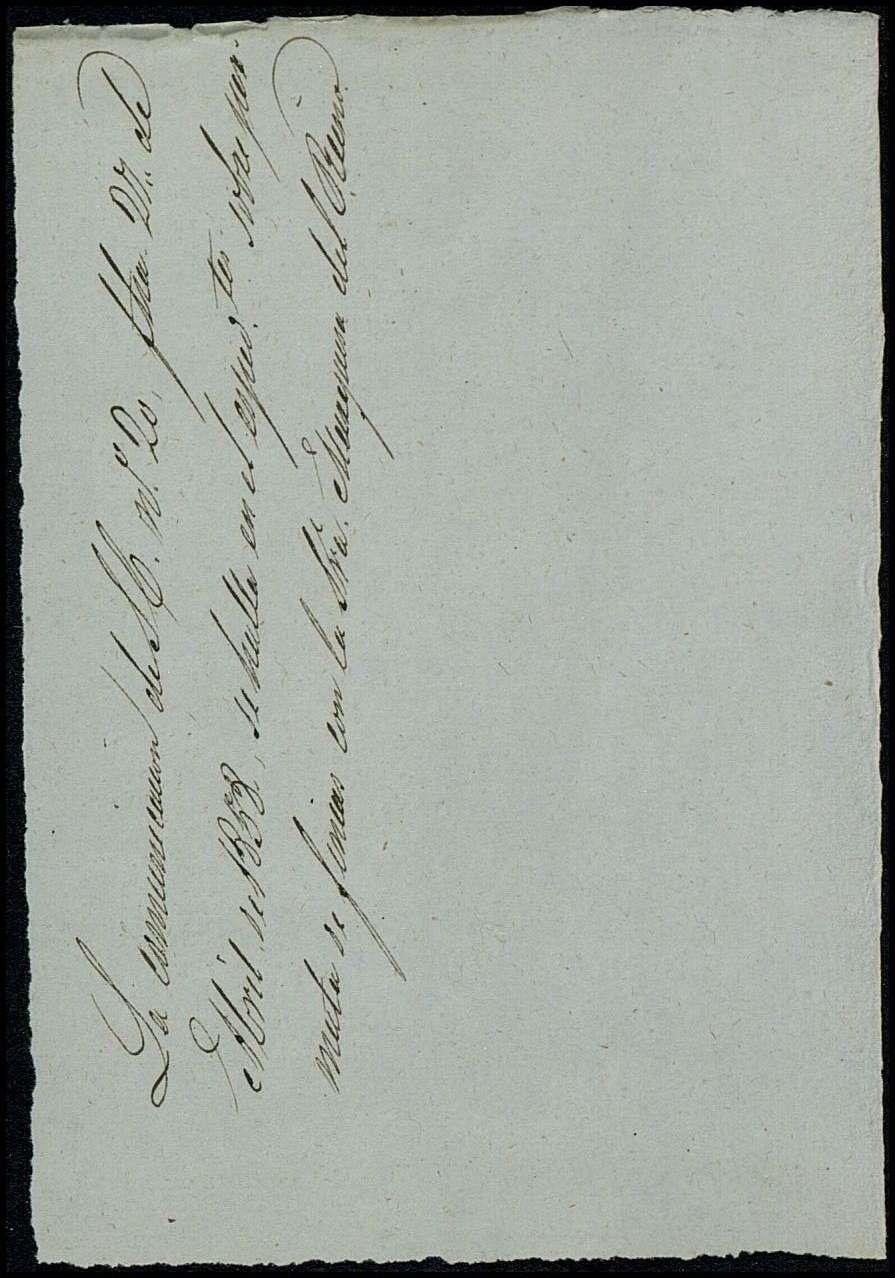 La comunicacion de S. E. nº 20, fha. 27. de
Abril de 1853, se halla en el expedtes. sobre per-
muta de fincas con la Sra. Marquesa del Reino.